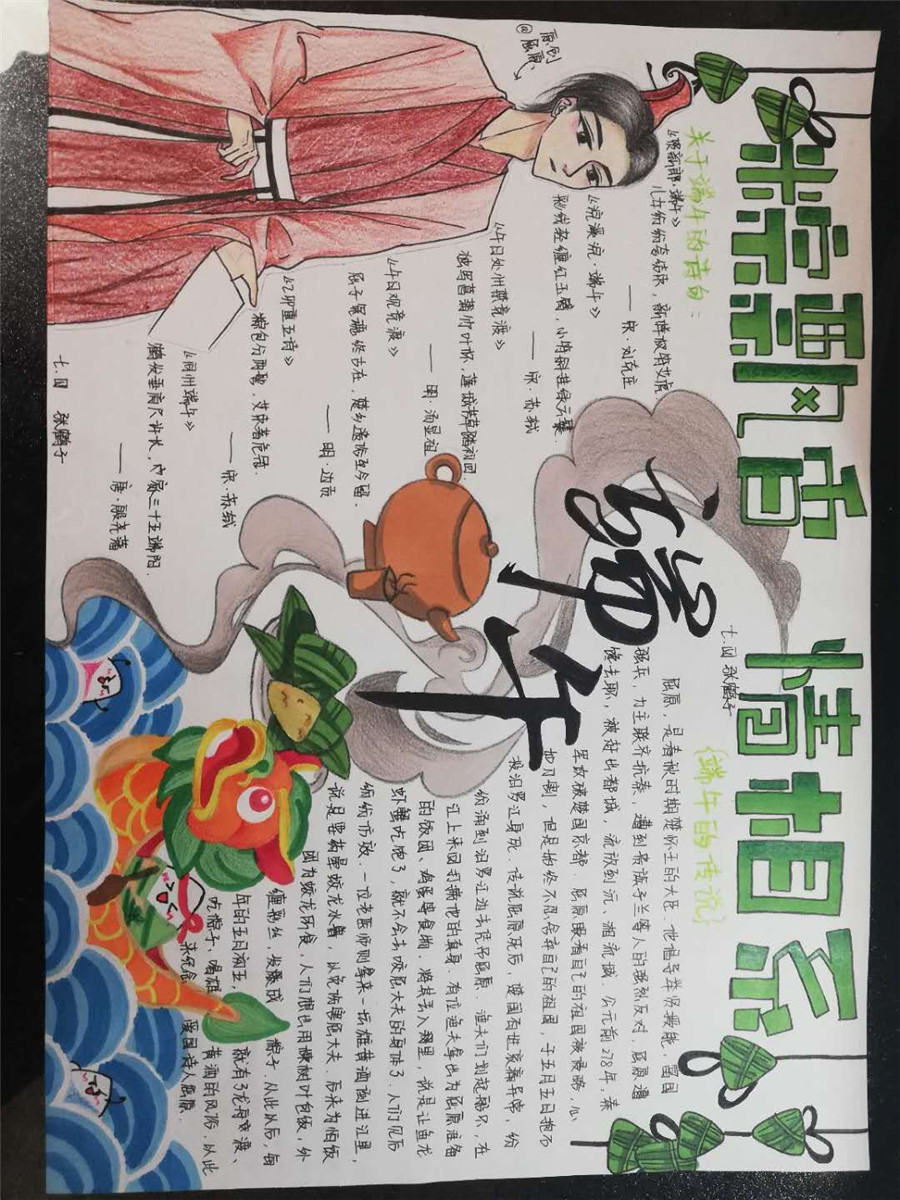 粽飘香 情相系
原创
@屈原
关于端午的诗句：
《贺新郎·端午》
儿女纷纷夸结束，新样钗符艾虎
——宋·刘克庄
《浣溪沙·端午》
彩线轻缠红玉臂，小符斜挂绿云鬟.
——宋·苏轼
《午日处州禁竞渡》
独写菖蒲竹叶杯，莲城芳草踏初回.
——明·汤显祖
《午日观竞渡》
屈子冤魂终古在，楚乡遗俗至今留.
——明·边贡
《乙卯重五诗》
粽包分两髻，艾束著危冠.
——宋·苏轼
《同州端午》
鹤发垂肩尺许长，离家三十五端阳.
——唐·殷尧藩
七.四 张鹏子
端午
七.四 张鹏子
{端午的传说}
屈原，是春秋时期楚怀王的大臣.他倡导举贤授能，富国
强兵，力主联齐抗秦，遭到贵族子兰等人的强烈反对，屈原遭
馋去职，被赶出都城，流放到沅、湘流域．公元前278年，秦
军攻破楚国京都．屈原眼看自己的祖国被侵略，心
如刀割，但是始终不忍舍弃自己的祖国，于五月五日抱石
投汨罗江身死．传说屈原死后，楚国百姓哀痛异常，纷
纷涌到汨罗江边去凭吊屈原．渔夫们划起船只，在
江上来回打捞他的真身．有位渔夫拿出为屈原准备
的饭团、鸡蛋等食物，将其丢入江里，说是让鱼龙
虾蟹吃饱了，就不会去咬屈大夫的身体了．人们见后
纷纷仿效．一位老医师则拿来一坛雄黄酒倒进江里，
说是要药晕蛟龙水兽，以免伤害屈大夫．后来为怕饭
团为蛟龙所食，人们想出用楝树叶包饭，外
缠彩丝，发展成 粽子．从此以后，每
年的五月初五，就有了龙舟竞渡、
吃粽子、喝雄黄酒的风俗，以此
来纪念 爱国诗人屈原.